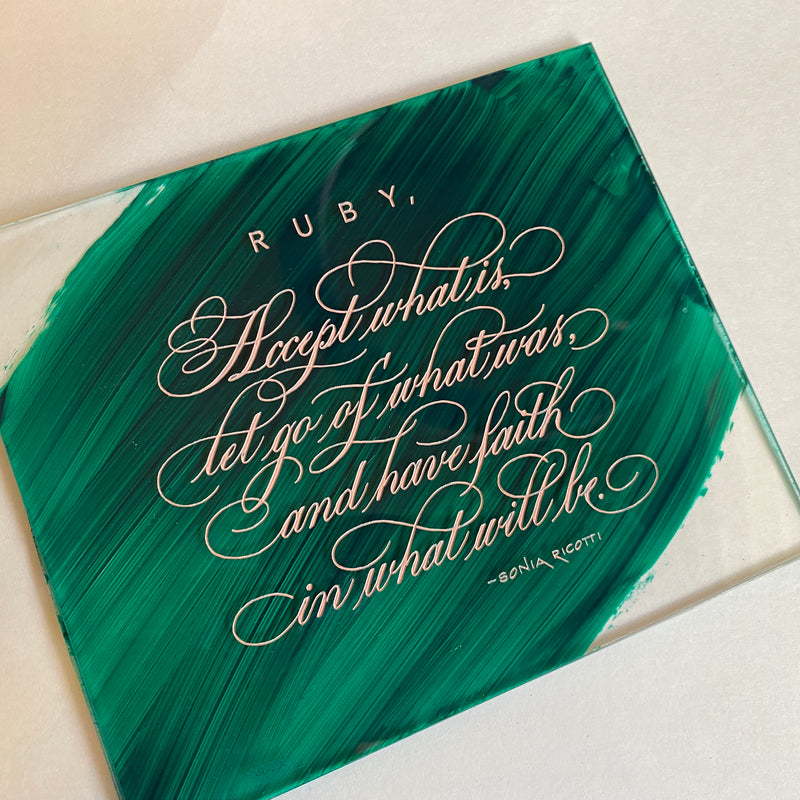 RUBY,
Accept what is,
let go of what was,
and have faith
in what will be.
-SONIA RICOTTI